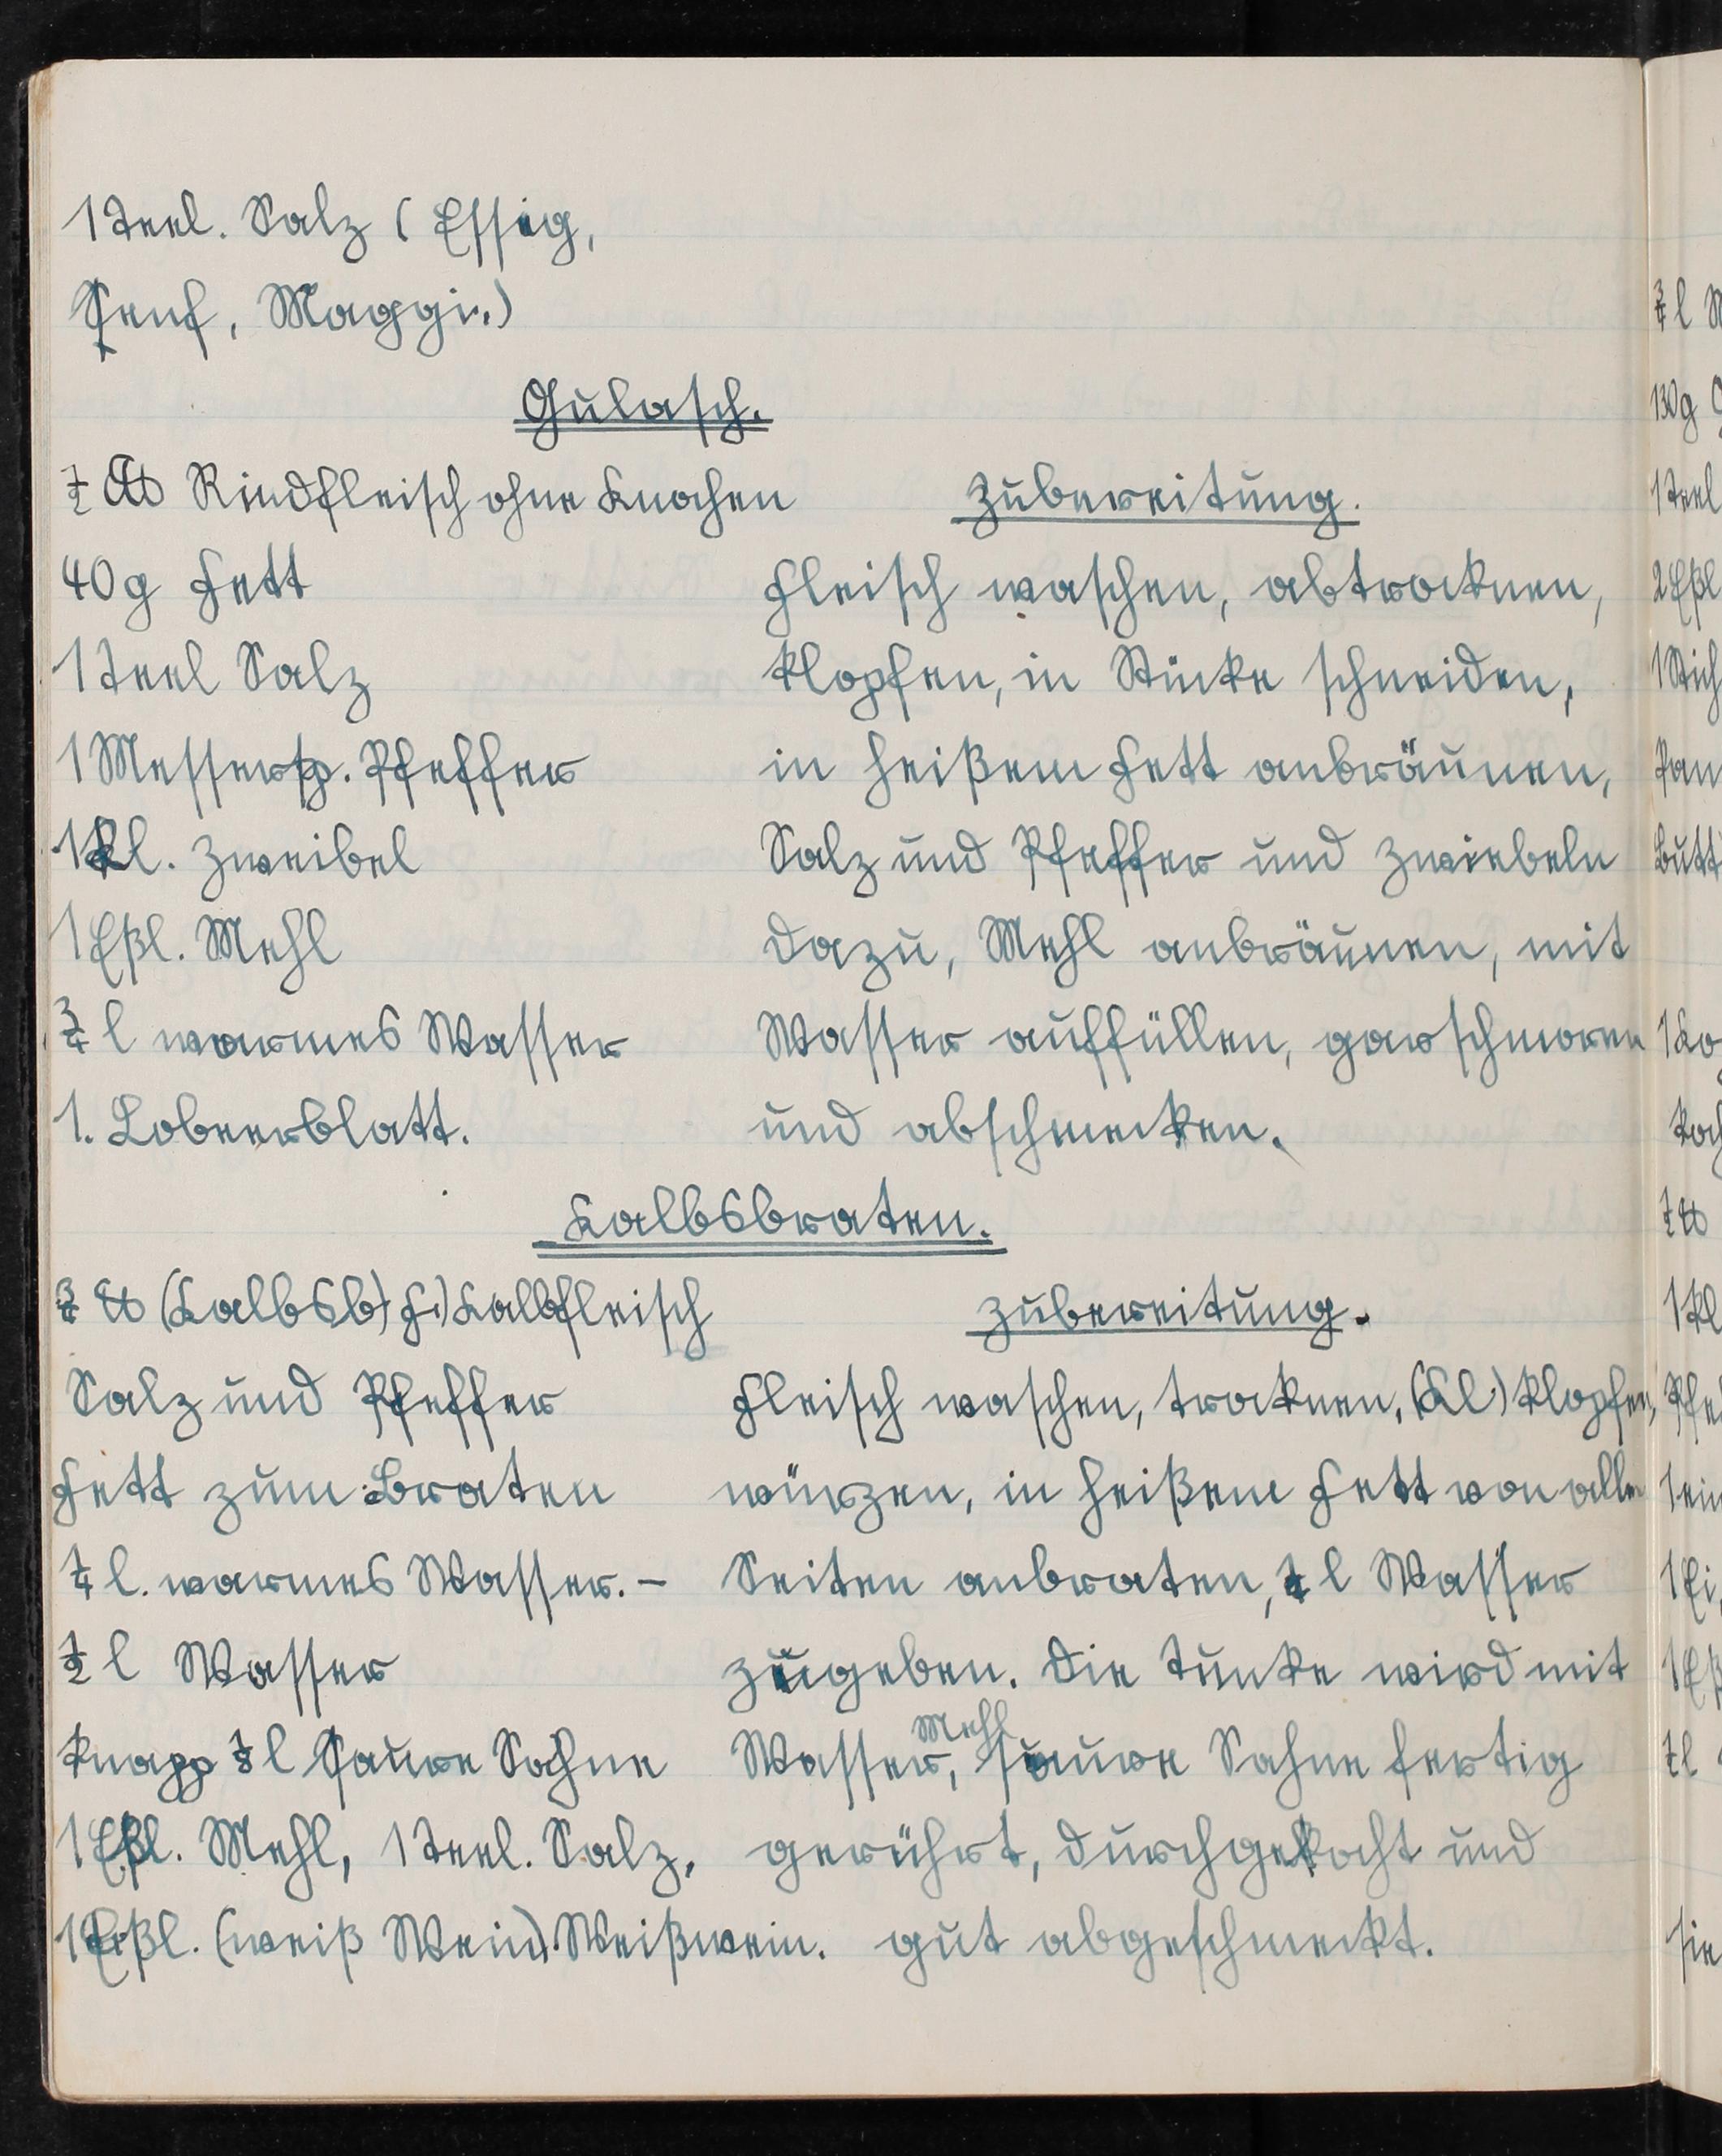 1 Teel. Salz (Essig,
Senf, Maggi.)
Gulasch.
½ ℔ Rindfleisch ohne Knochen
40 g Fett
1 Teel Salz
1 Messersp. Pfeffer
1 Kl. Zweibel
1 Eßl. Mehl
¾ l warmes Wasser
1. Lobeerblatt.
Zubereitung.
Fleisch waschen, abtrocknen,
klopfen, in Stücke schneiden,
in heißem Fett anbräunen,
Salz und Pfeffer und Zwiebeln
dazu, Mehl anbräunen, mit
Wasser auffüllen, garschmoren
und abschmecken.
Kalbsbraten.
¾ ℔ (Kalbsb) f.) Kalbfleisch
Salz und Pfeffer
Fett zum Braten
¼ l. warmes Wasser. –
½ l Wasser
knapp ⅛ l Saure Sahne
1 Eßl. Mehl, 1 Teel. Salz,
1 Eßl. (weiß Wein). Weißwein.
Zubereitung.
Fleisch waschen, trocknen, (Kl) klopfen,
würzen, in heißem Fett von allen
Seiten anbraten, ¼ l Wasser
zugeben. Die Tunke wird mit
Mehl
Wasser, saure Sahne fertig
gerührt, durchgekocht und
gut abgeschmeckt.
¾ l
130 g
1 Teel
2 Eßl
1 Stich
Butt
½ ℔
1 Kl
1 Ei,
1 Eß